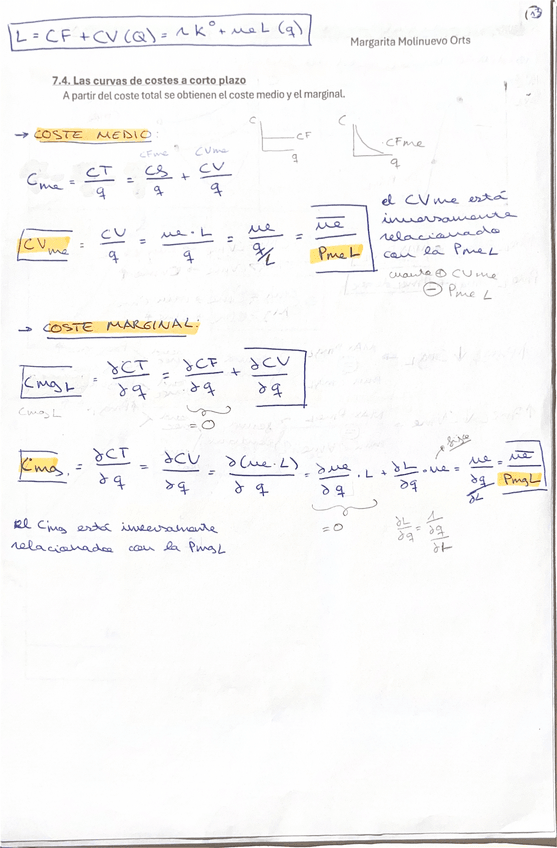 L = CF + CV(Q) = r K⁰ + w L (q)
Margarita Molinuevo Orts
7.4. Las curvas de costes a corto plazo
A partir del coste total se obtienen el coste medio y el marginal.
→ COSTE MEDIO:
C CF q
C CFme q
CFme CVme
Cme = CT/q = CF/q + CV/q
CVme = CV/q = w·L/q = w/(q/L) = w̅/PmeL
el CVme está
inversamente
relacionado
con la PmeL
cuanto ⊕ CVme
⊖ PmeL
→ COSTE MARGINAL:
CmgL = ∂CT/∂q = ∂CF/∂q + ∂CV/∂q
CmgL
= 0
Cmg = ∂CT/∂q = ∂CV/∂q = ∂(w·L)/∂q = ∂w/∂q · L + ∂L/∂q · w = w/(∂q/∂L) = w̅/PmgL
= 0
∂L/∂q = 1/(∂q/∂L)
El Cmg está inversamente
relacionado con la PmgL